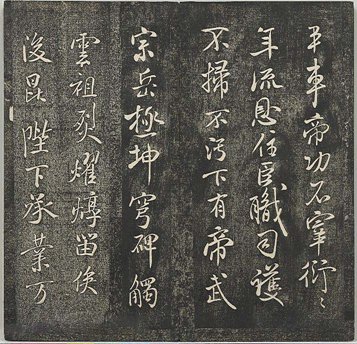 車帝功不宰衍〻
年流恩住臣職司護
不掃不污下有帝武
宗岳極坤穹碑觸
雲祖烈燿焞留俟
後昆陛下承業万